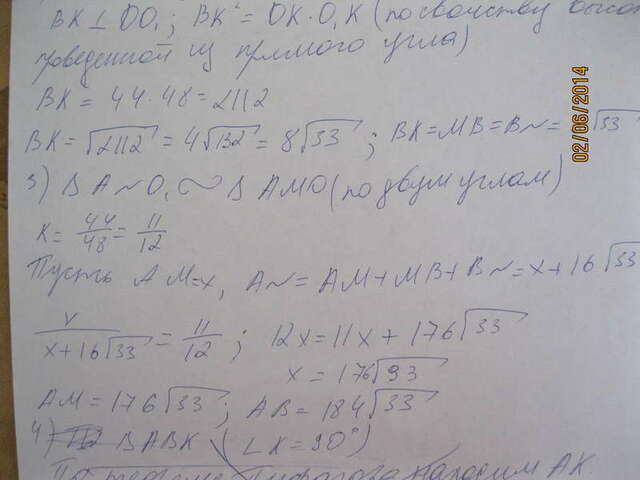 BK ⊥ OO₁; BK² = OK·O₁K (по свойству высо
проведенной из прямого угла)
BK = 44·48 = 2112
BK = √2112 = 4√132 = 8√33; BK = MB = BN = 8√33
3) Δ ANO₁ ∾ Δ AMO (по двум углам)
K = 44/48 = 11/12
Пусть AM = x, AN = AM + MB + BN = x + 16√33
x/(x+16√33) = 11/12; 12x = 11x + 176√33
x = 176√33
AM = 176√33; AB = 184√33
4) ΔABK (∠K = 90°)
По теореме Пифагора находим AK.
02/06/2014